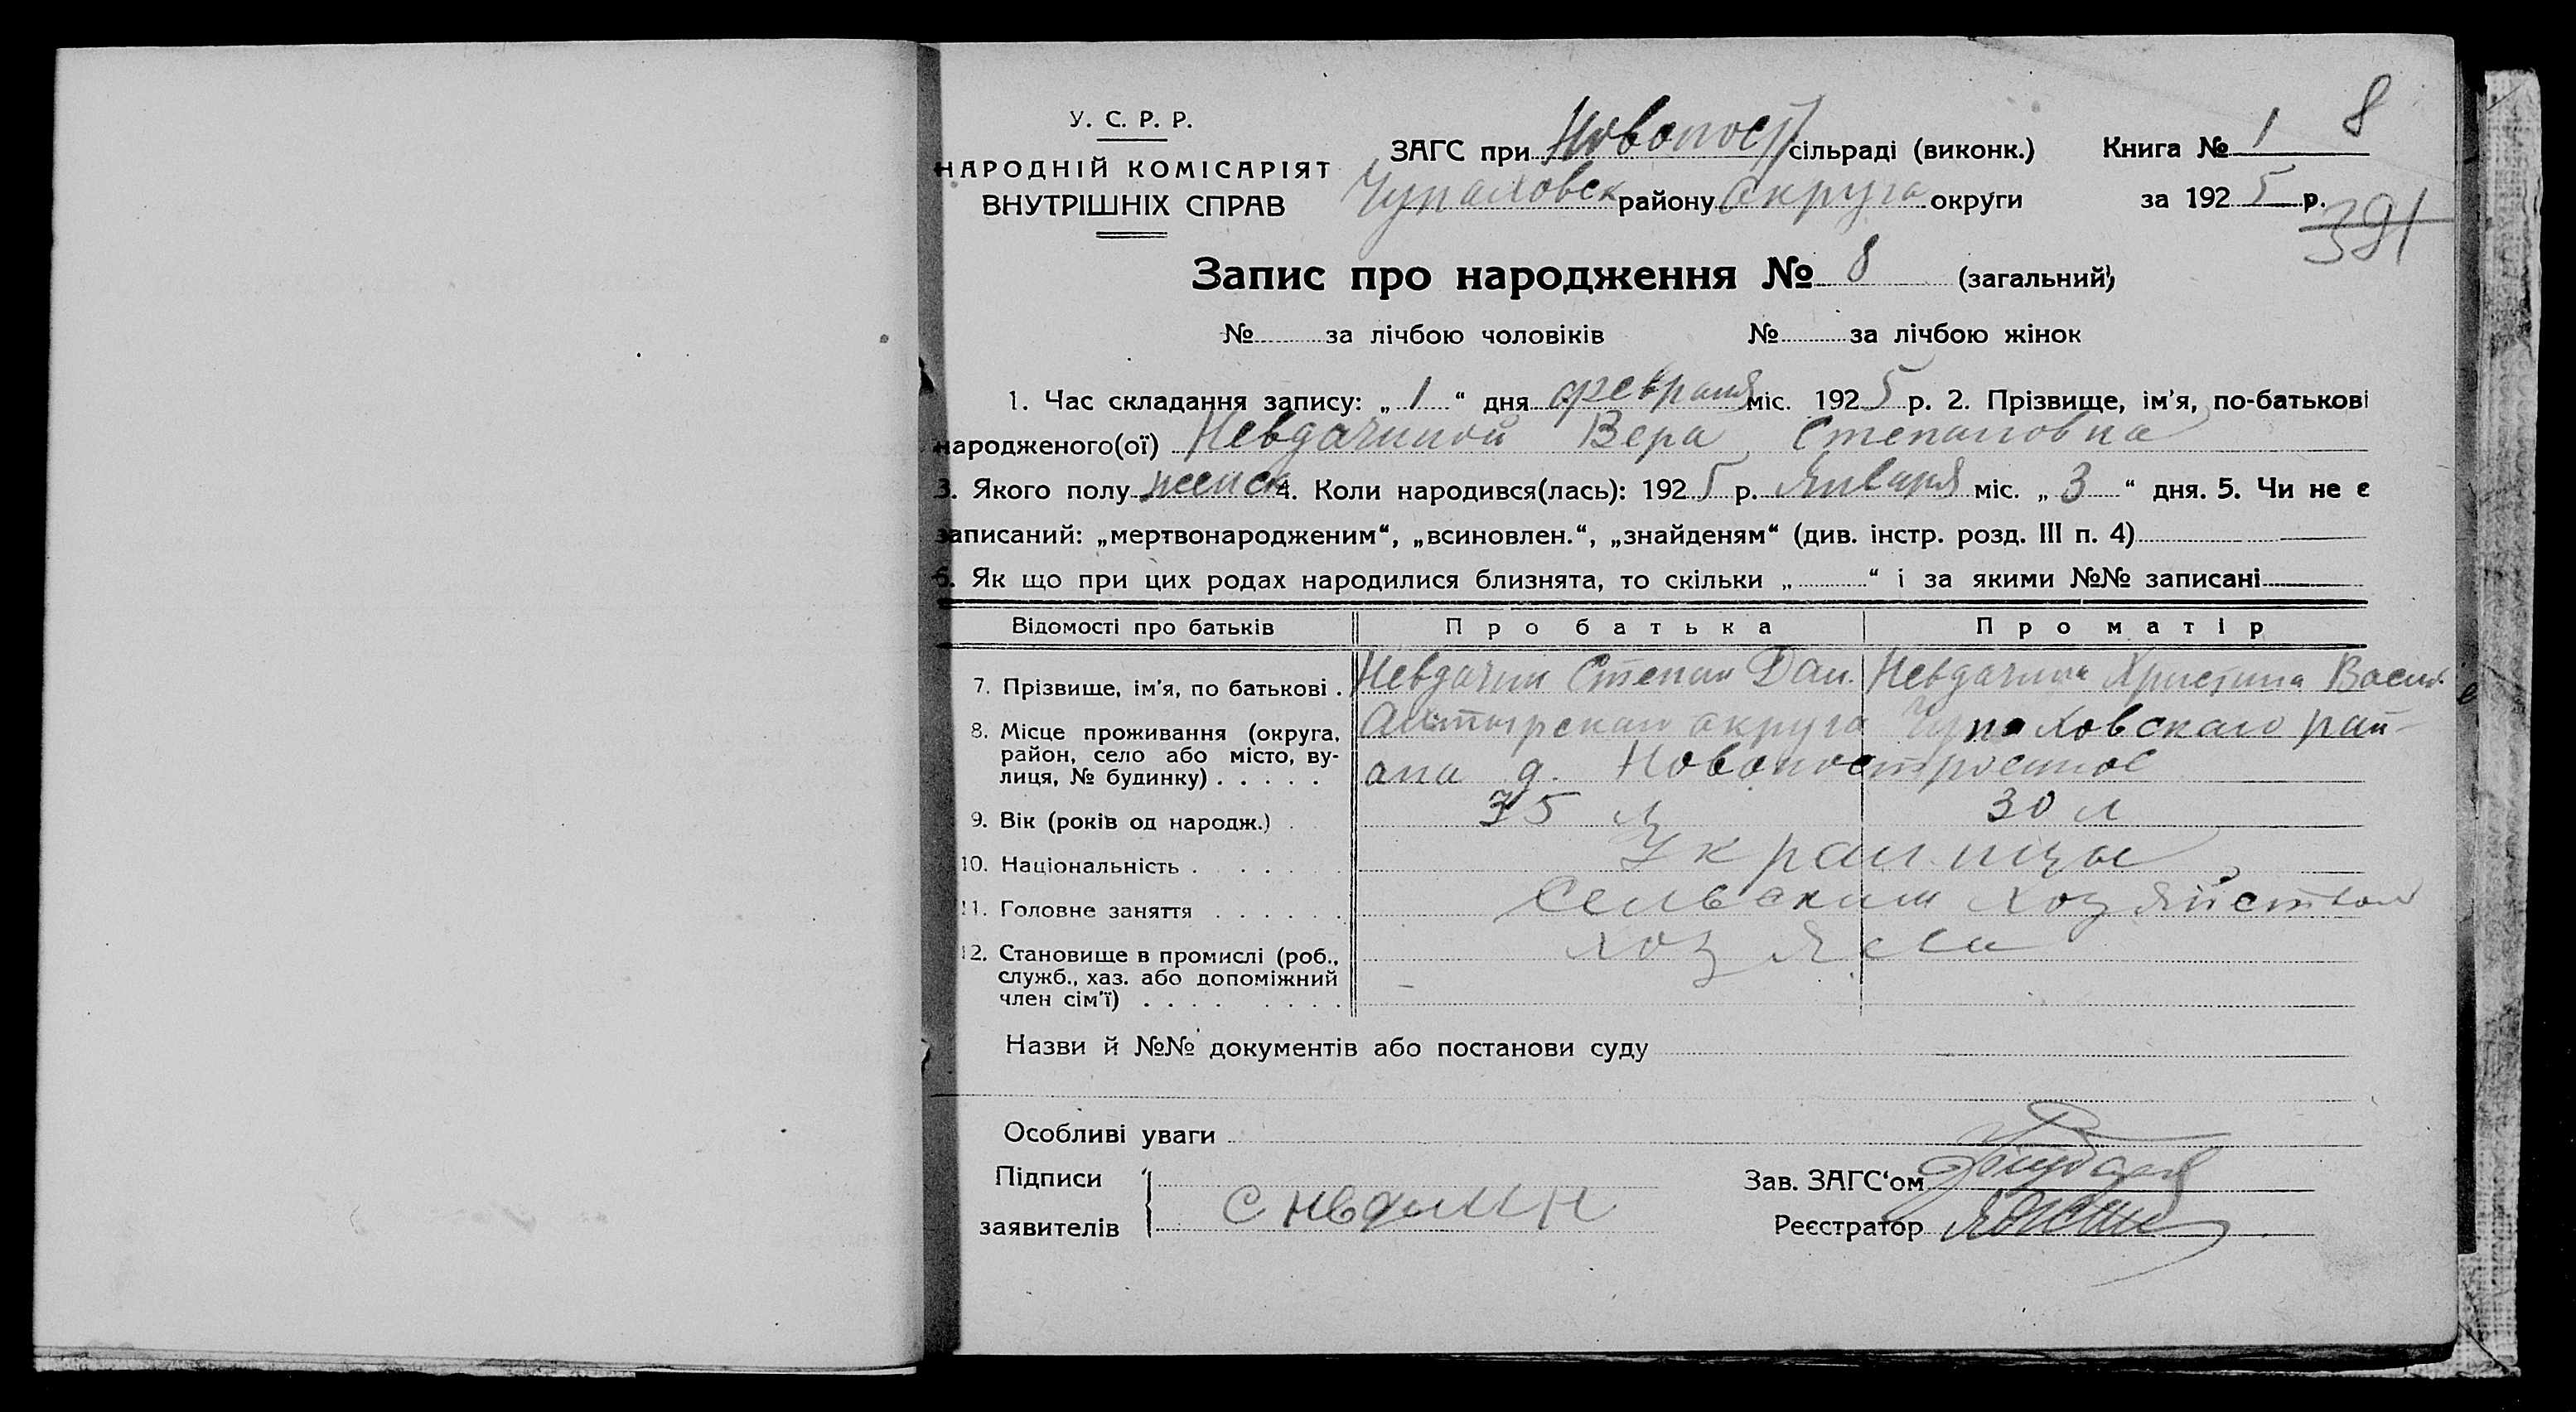 8
У. С. Р. Р.
НАРОДНІЙ КОМІСАРІЯТ
ВНУТРІШНІХ СПРАВ
ЗАГС при Новопост сільраді (виконк.) Книга № 1
Чупаховск району округа округи за 1925 р.
391
Запис про народження № 8 (загальний)
№ за лічбою чоловіків № за лічбою жінок
1. Час складання запису: „ 1 “ дня февраля міс. 1925 р. 2. Прізвище, ім'я, по-батькові
народженого(ої) Невдачиной Вера Степановна
3. Якого полу женск 4. Коли народився(лась): 1925 р. Января міс. „ 3 “ дня. 5. Чи не є
записаний: „мертвонародженим“, „всиновлен.“, „знайденям“ (див. інстр. розд. III п. 4)
6. Як що при цих родах народилися близнята, то скільки „ “ і за якими №№ записані
Відомості про батьків Про батька Про матір
7. Прізвище, ім'я, по батькові . Невдачин Степан Дан. Невдачина Христина Васил
8. Місце проживання (округа, район, село або місто, вулиця, № будинку) . . . . .
округа Чупаховскаго рай-
она д. Новопостроеное
9. Вік (років од народж.) . 35 л 30 л
10. Національність . . . . . Украинцы
11. Головне заняття . . . . . . Сельским хозяйством
12. Становище в промислі (роб., хозяева
служб., хаз. або допоміжний
член сім'ї) . . . . . . . .
Назви й №№ документів або постанови суду
Особливі уваги
Підписи Зав. ЗАГС‘ом
заявителів С Реєстратор